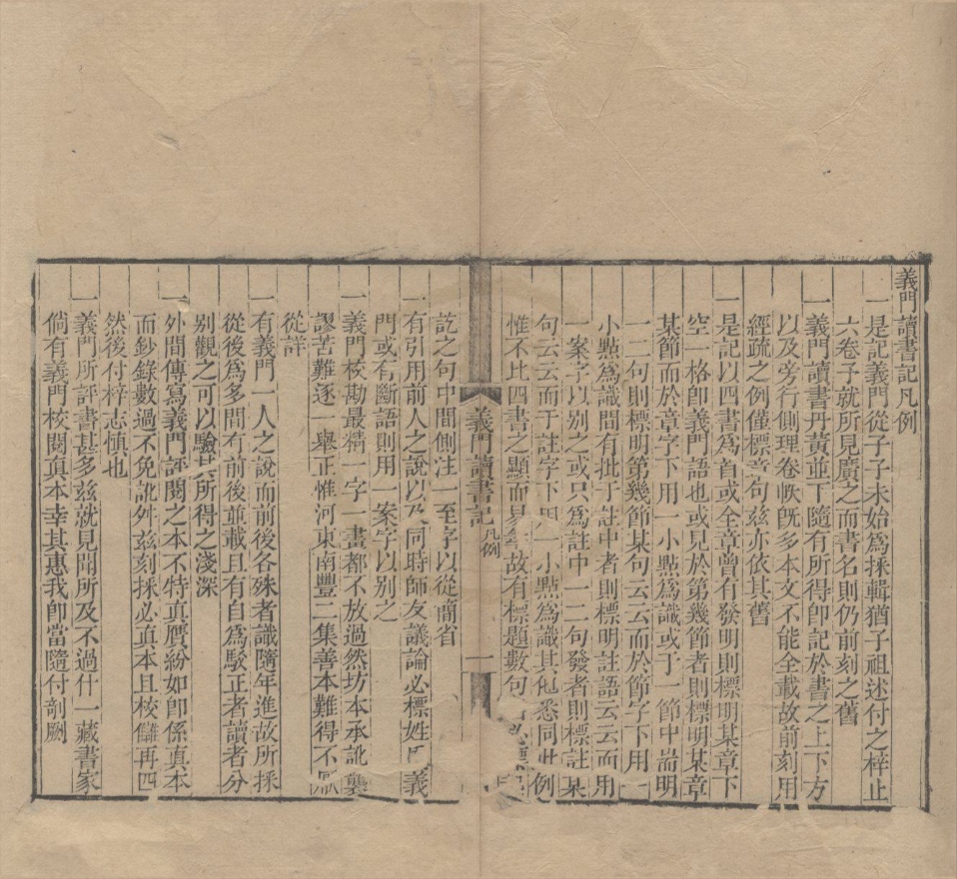 義門讀書記凡例
一是記義門從子子未始爲採輯猶子祖述付之梓止
六卷子就所見廣之而書名則仍前刻之舊
一義門讀書丹黃並下隨有所得卽記於書之上下方
以及旁行側理卷帙旣多本文不能全載故前刻用
經疏之例僅標章句兹亦依其舊
一是記以四書爲首或全章曾有發明則標明某章下
空一格卽義門語也或見於第幾節者則標明某章
某節而於章字下用一小點爲識或于一節中耑明
一二句則標明第幾節某句云云而於節字下用一
小點爲識間有批于註中者則標明註語云云而用
一案字以別之或只爲註中一二句發者則標註某
句云云而于註字下用一小點爲識其他悉同此例
惟不比四書之顯而易 故有標題數句
義門讀書記 凡例 一
訖之句中間側注一至字以從簡省
一有引用前人之說以及同時師友議論必標姓氏義
門或有斷語則用一案字以別之
一義門校勘最精一字一畫都不放過然坊本承訛襲
謬苦難逐一舉正惟河東南豐二集善本難得不厭
從詳
一有義門一人之說而前後各殊者識隨年進故所採
從後爲多間有前後並載且有自爲駁正者讀者分
別觀之可以驗其所得之淺深
一外間傳寫義門評閱之本不特真贋紛如卽係真本
而鈔錄數過不免訛舛兹刻採必真本且校讎再四
然後付梓志慎也
一義門所評書甚多兹就見聞所及不過什一藏書家
倘有義門校閱真本幸其惠我卽當隨付剞劂